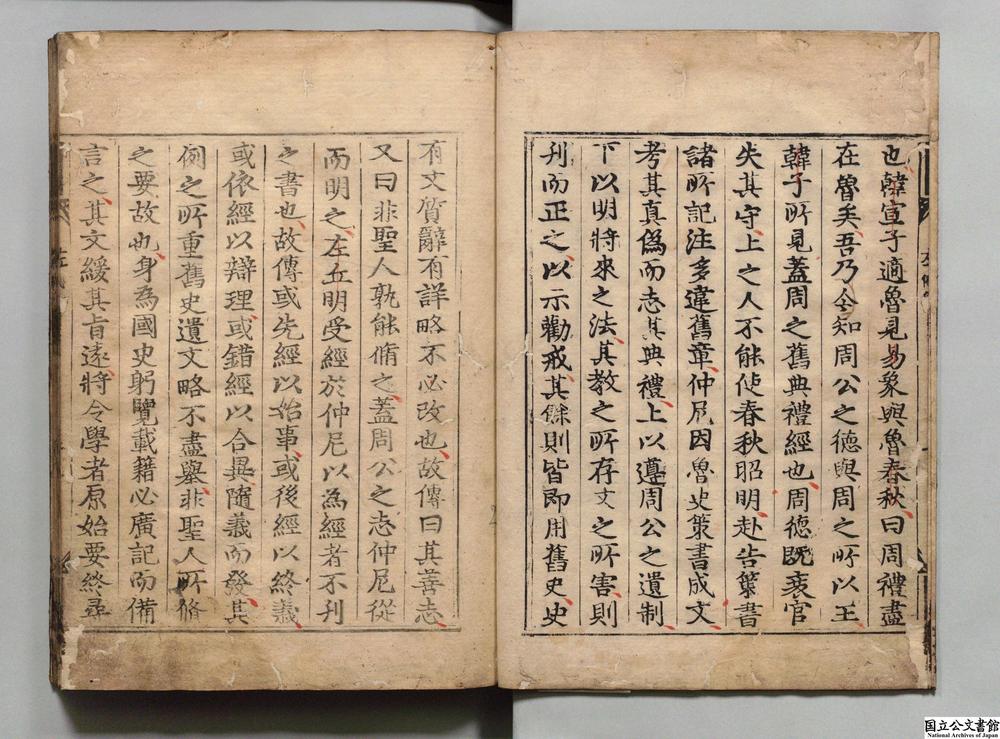 也韓宣子適魯見易象與魯春秋曰周禮盡
在魯矣吾乃今知周公之德與周之所以王
韓子所見蓋周之舊典禮經也周德既衰官
失其守上之人不能使春秋昭明赴告策書
諸所記注多違舊章仲尼因魯史策書成文
考其真偽而志其典禮上以遵周公之遺制
下以明將來之法其教之所存文之所害則
刊而正之以示勸戒其餘則皆即用舊史史
有文質辭有詳略不必改也故傳曰其善志
又曰非聖人孰能脩之蓋周公之志仲尼從
而明之左丘明受經於仲尼以為經者不刊
之書也故傳或先經以始事或後經以終義
或依經以辯理或錯經以合異隨義而發其
例之所重舊史遺文略不盡舉非聖人所脩
之要故也身為國史躬覽載籍必廣記而備
言之其文緩其旨遠將令學者原始要終尋
国立公文書館
National Archives of Japan